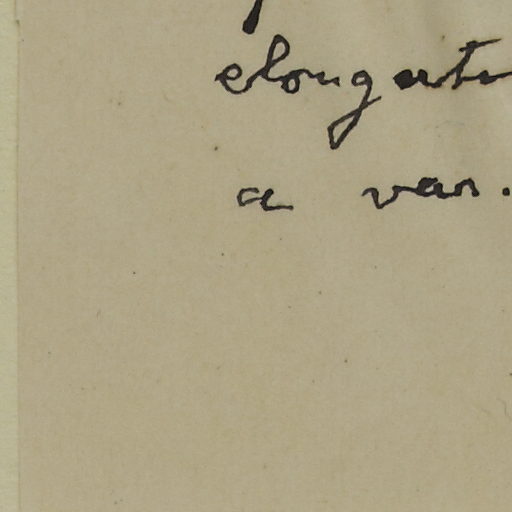 elongate
a var.